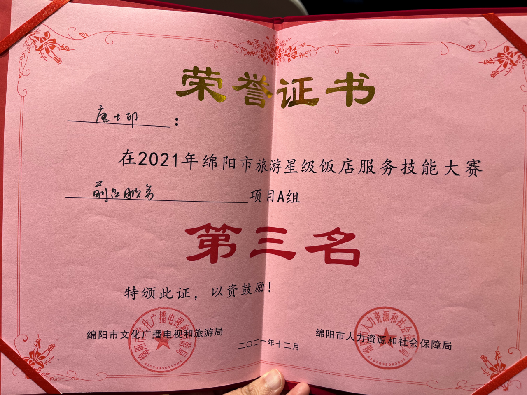 荣誉证书
：
在2021年绵阳市旅游星级饭店服务技能大赛
前厅服务 项目A组
第三名
特颁此证，以资鼓励！
绵阳市文化广播电视和旅游局
绵阳市人力资源和社会保障局
二〇二一年十二月